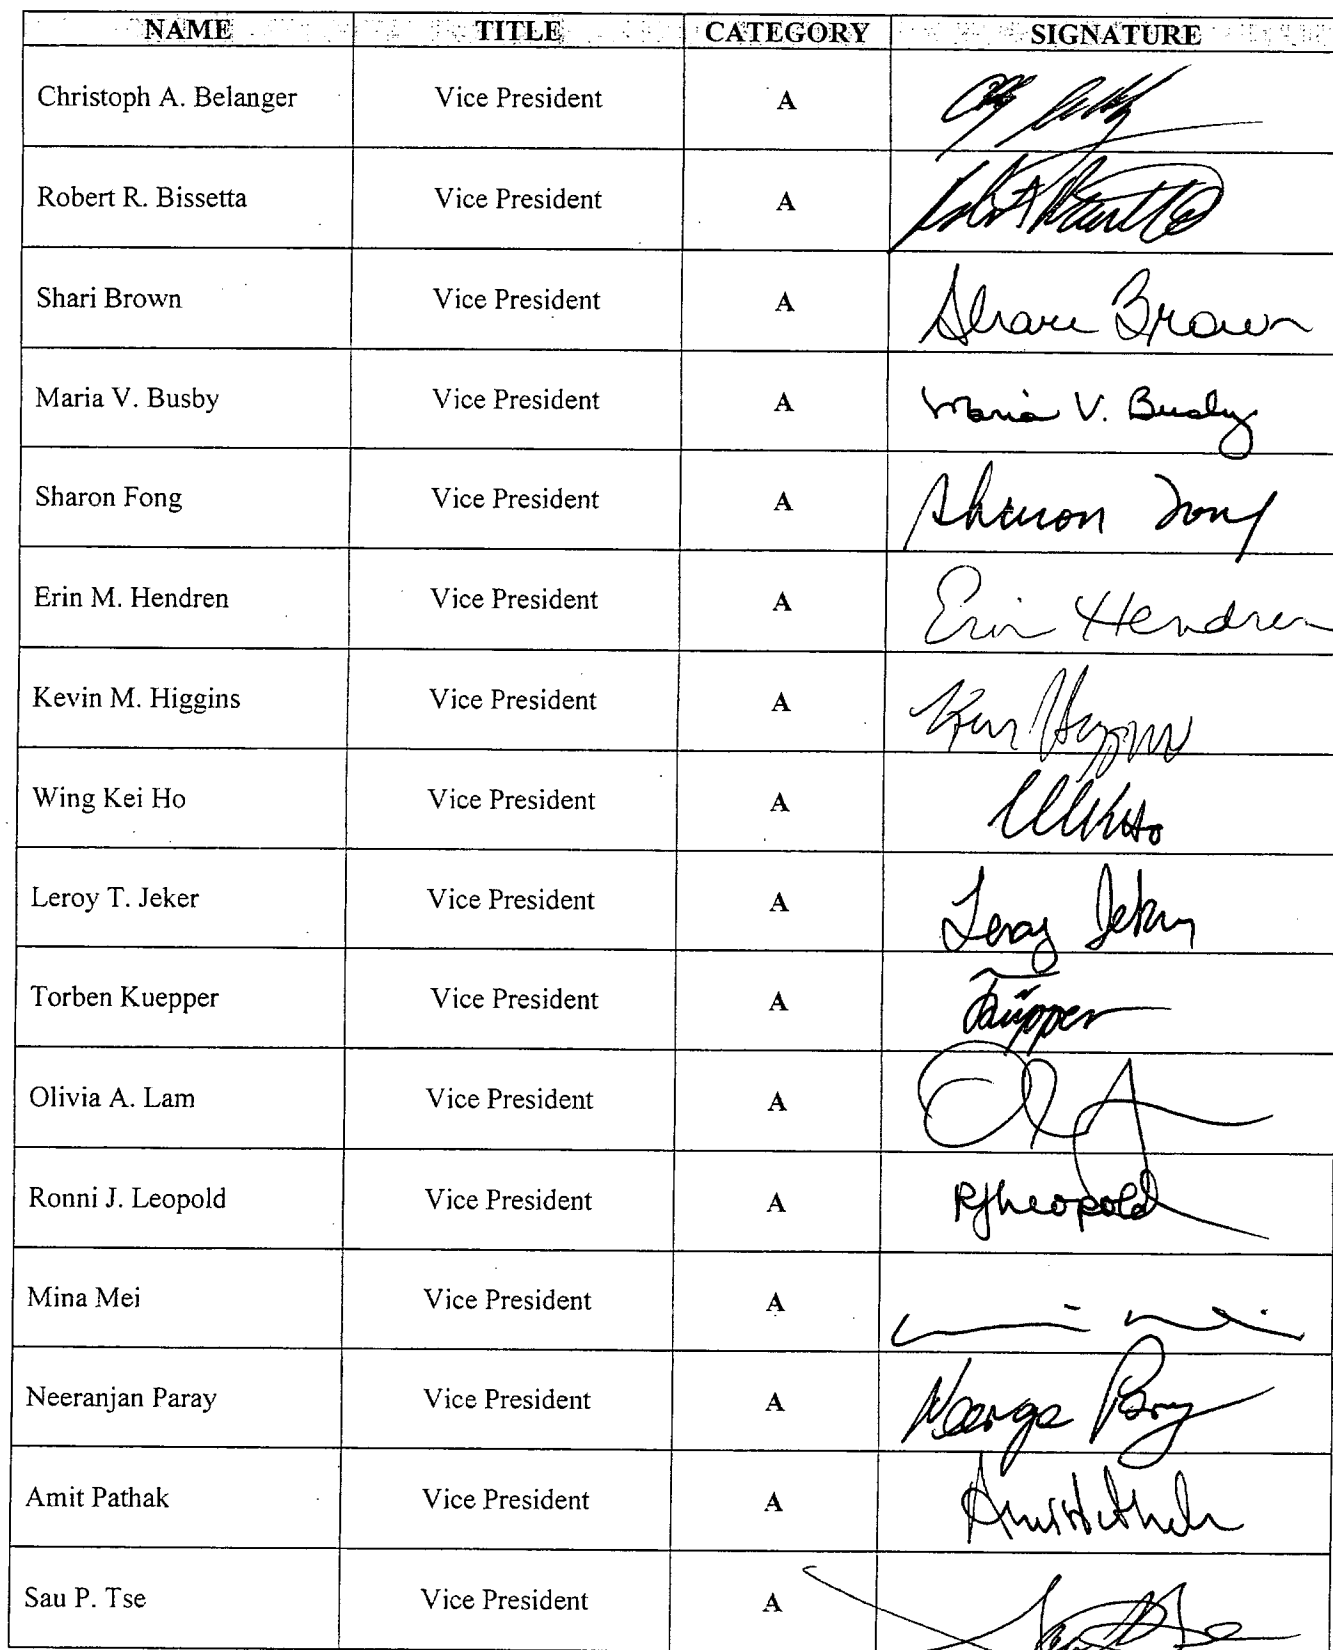 NAME TITLE CATEGORY SIGNATURE
Christoph A. Belanger Vice President A
Robert R. Bissetta Vice President A
Shari Brown Vice President A Shari Brown
Maria V. Busby Vice President A Maria V. Busby
Sharon Fong Vice President A Sharon Fong
Erin M. Hendren Vice President A Erin Hendren
Kevin M. Higgins Vice President A
Wing Kei Ho Vice President A WKHo
Leroy T. Jeker Vice President A Leroy Jeker
Torben Kuepper Vice President A
Olivia A. Lam Vice President A
Ronni J. Leopold Vice President A RJLeopold
Mina Mei Vice President A
Neeranjan Paray Vice President A
Amit Pathak Vice President A
Sau P. Tse Vice President A